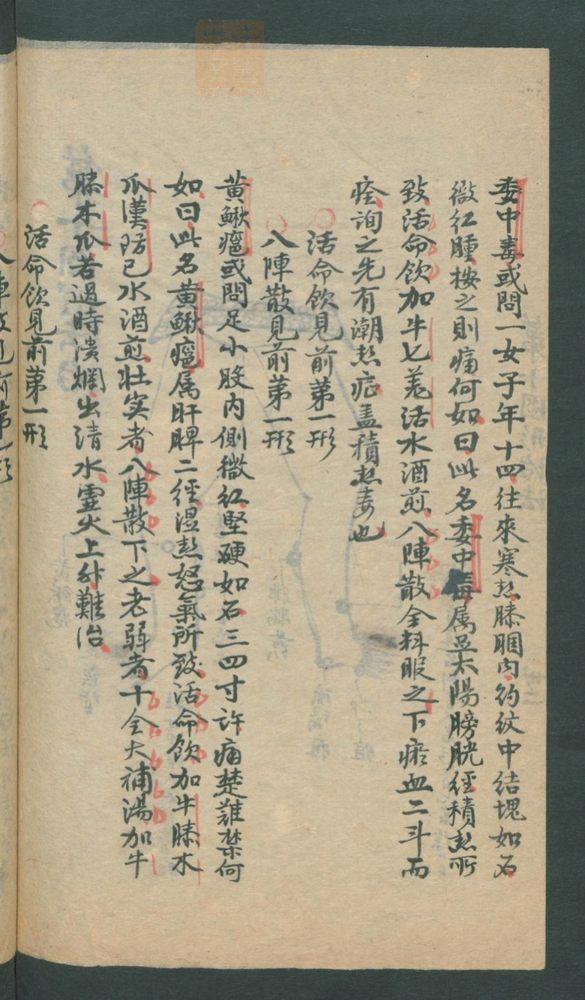 委中毒或問一女子年十四往來寒熱膝膕内約紋中結塊如石
微紅腫按之則痛何如曰此名委中毒属足太陽膀胱經積熱所
致活命飲加牛七羌活水酒煎八陣散全料服之下瘀血二斗而
痊詢之先有潮熱症盖積熱毒也
活命飲見前第一形
八陣散見前第一形
黄鰍癰或問足小股内側微紅堅硬如石三四寸許痛楚難禁何
如曰此名黄鰍癰属肝脾二經湿熱怒氣所致活命飲加牛膝木
瓜漢防已水酒煎壮実者八陣散下之老弱者十全大補湯加牛
膝木瓜若過時潰爛出清水虛火上升難治
活命飲見前第一形